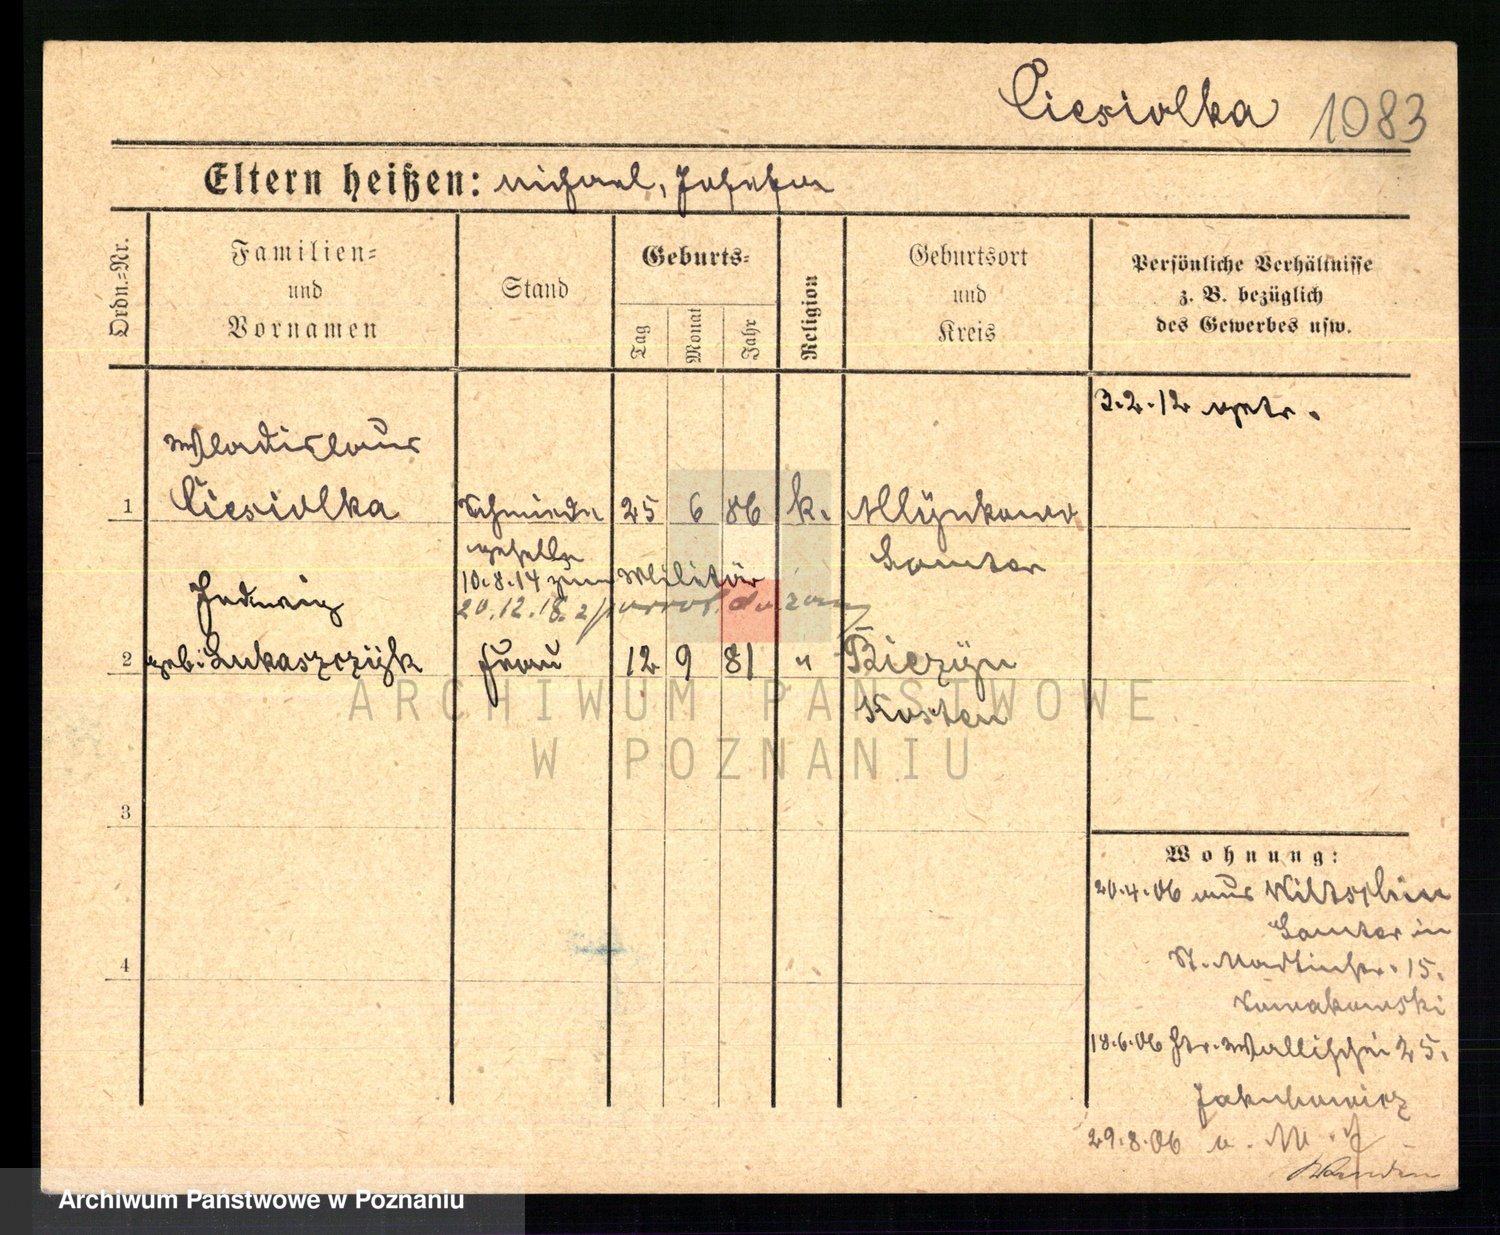 Ciesiolka 1083
Eltern heißen: Michael, Josefa
Ordn.-Nr.
Familien-
und
Vornamen
Stand
Geburts-
Tag
Monat
Jahr
Religion
Geburtsort
und
Kreis
Persönliche Verhältnisse
z. B. bezüglich
des Gewerbes usw.
3.2.12
Wladislaus
1 Ciesiolka Schmiede 25 6 86 k. Mlynkowo
geselle Samter
10.8.14 zum Militär
20.12.18.
Hedwig
2 geb. Lukaszczyk Frau 12 9 81 " Biezyn
Kosten
3
4
Wohnung:
20.4.06 aus
Samter in
St. Martinstr. 15.
Nowakowski
18.6.06 Wallischei 25.
Jakubowicz
29.8.06
ARCHIWUM PAŃSTWOWE
W POZNANIU
Archiwum Państwowe w Poznaniu